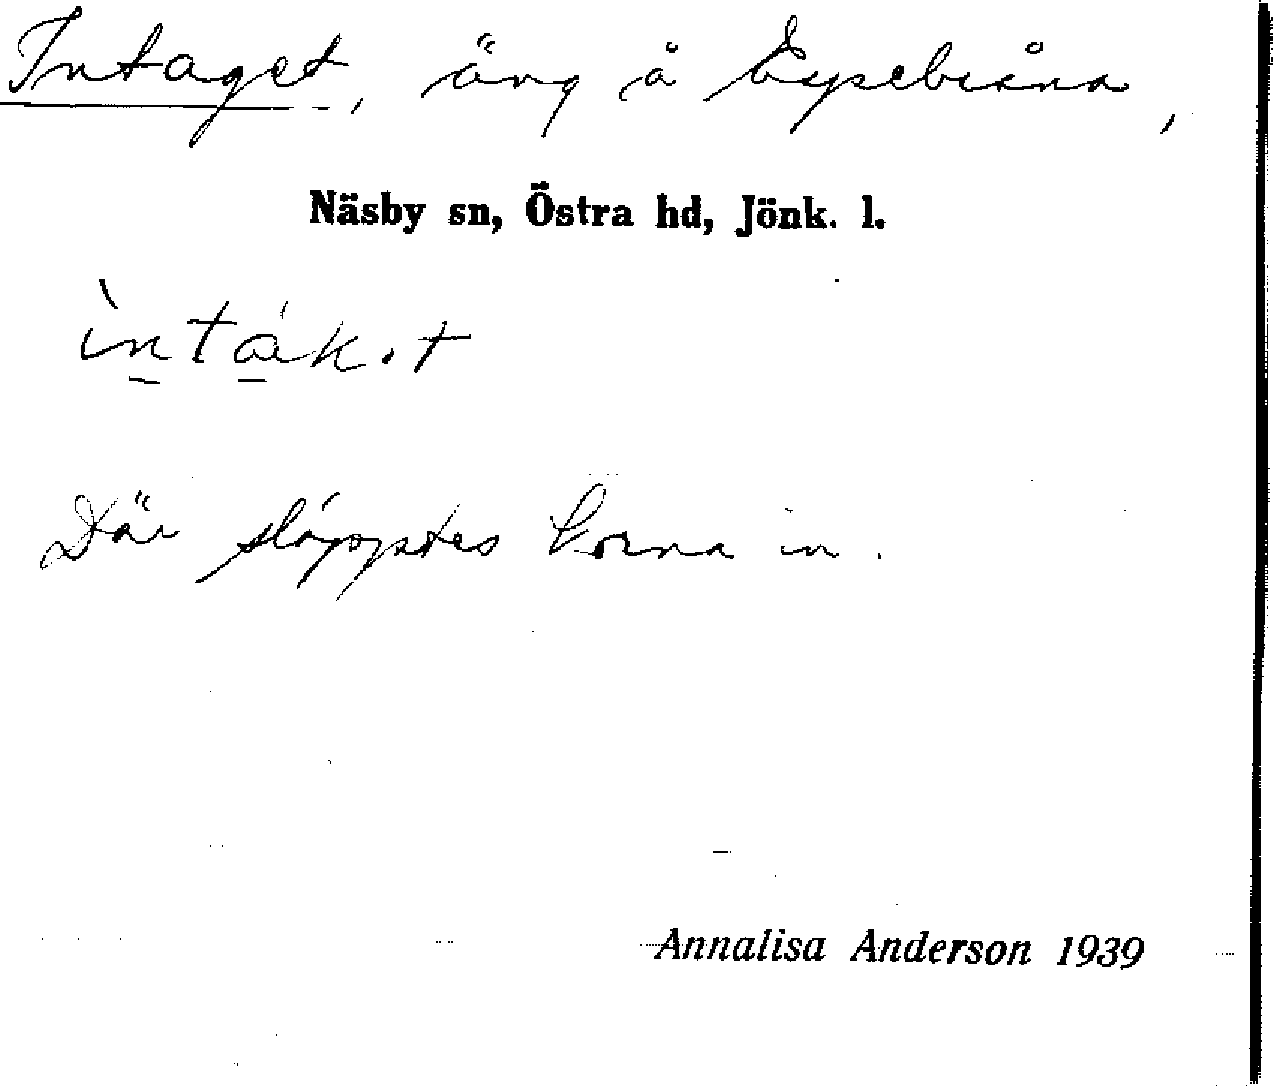 Intaget, äng å
Näsby sn, Östra hd, Jönk. l.
Där släpptes korna in.
Annalisa Anderson 1939